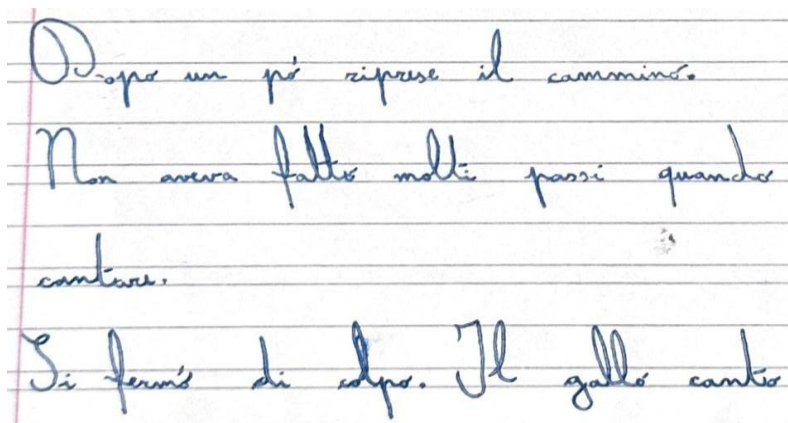 Dopo un pó riprese il cammino.
Non aveva fatto molti passi quando
cantare.
Si fermó di colpo. Il gallo canto